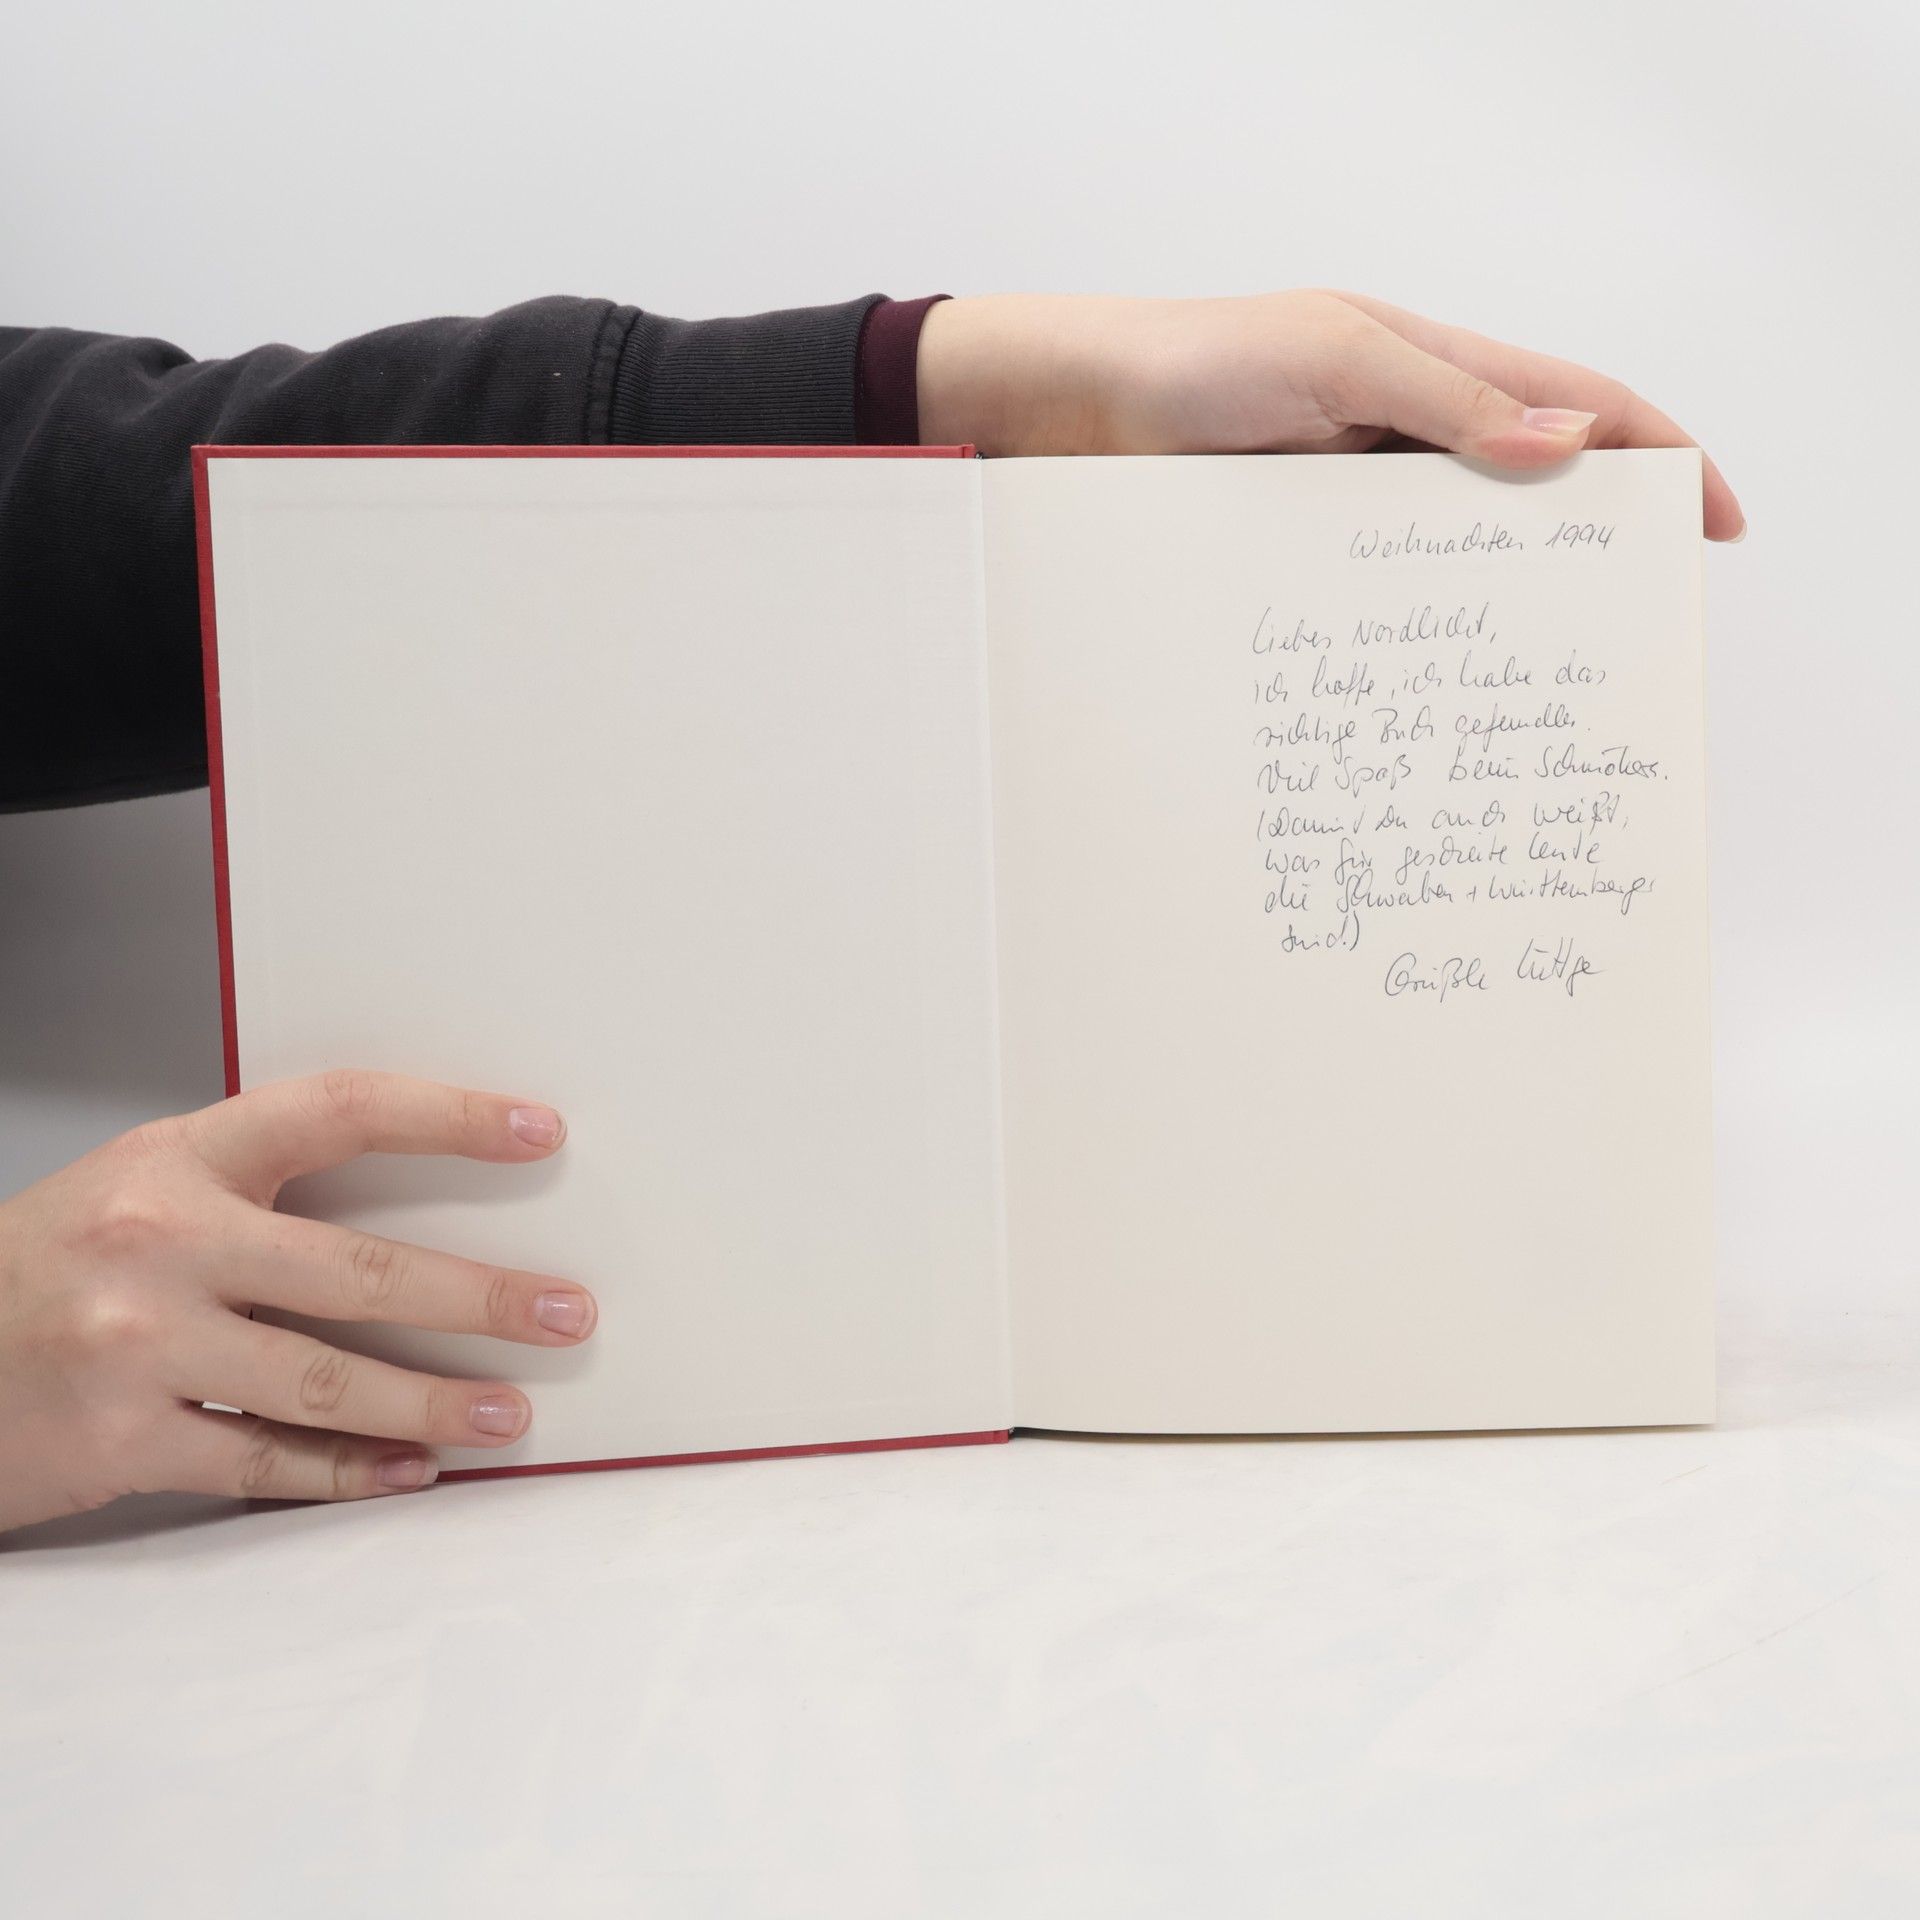 Weihnachten 1994
Liebes Nordlicht,
ich hoffe, ich habe das
richtige Buch gefunden.
Viel Spaß beim Schmökern.
(Damit Du auch weißt,
was für gescheite Leute
die Schwaben + Württemberger
sind!)
Grüßle